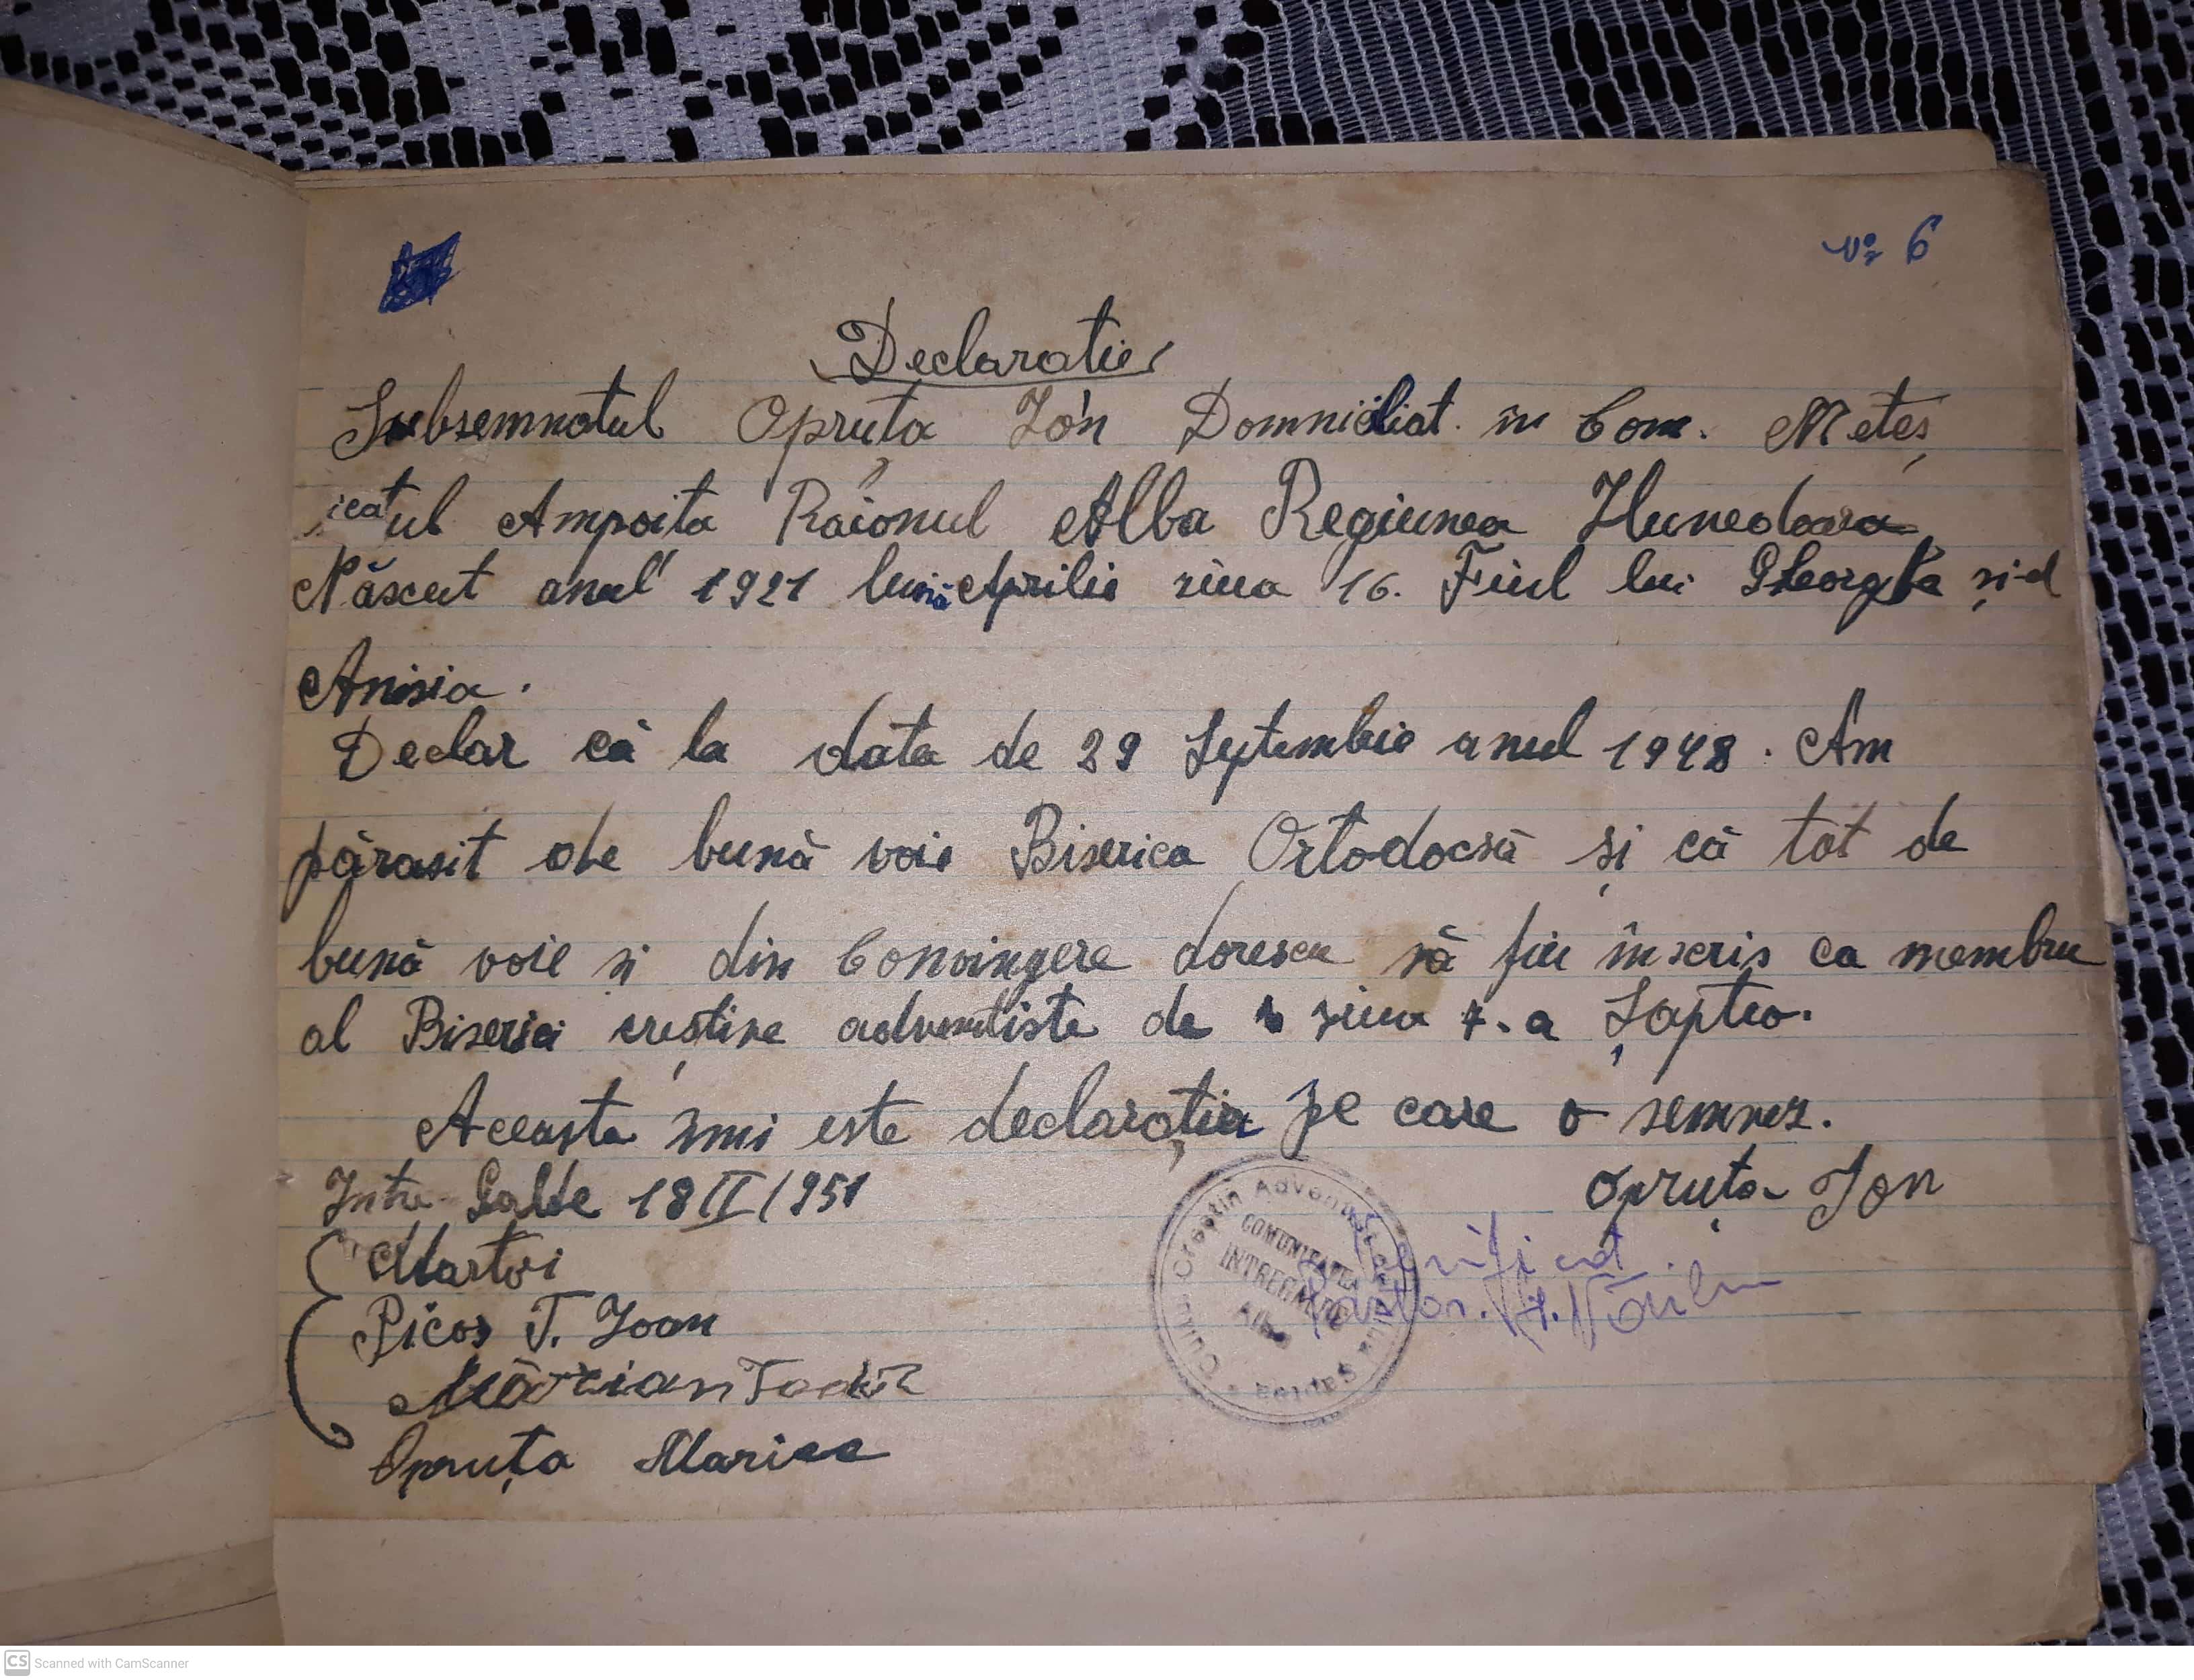 Nr 6
Declaratie
Subsemnatul Opruța Ion Domniciliat în Com. Meteș
icatul Ampoita Raionul Alba Regiunea Hunedoara
Născut anul 1921 luna Aprilie ziua 16. Fiul lui Gheorghe și-al
Anisia.
Declar că la data de 29 Septembie anul 1948. Am
părasit de bună voie Biserica Ortodocsă și că tot de
bună voie si din Convingere dorescu să fiu înscris ca membru
al Biserici creștine adventiste de ziua 7.a Șaptea.
Aceasta îmi este declarația pe care o semnez.
Intre Galde 18 II/1951
Opruța Ion
Martori
Verificat
Picos T. Ioan
Pastor.
Mărzian
Opruța Maria
Cultul Creștin Adventist de Ziua Șaptea
COMUNITATEA
INTREGALDE
Alba
CS Scanned with CamScanner